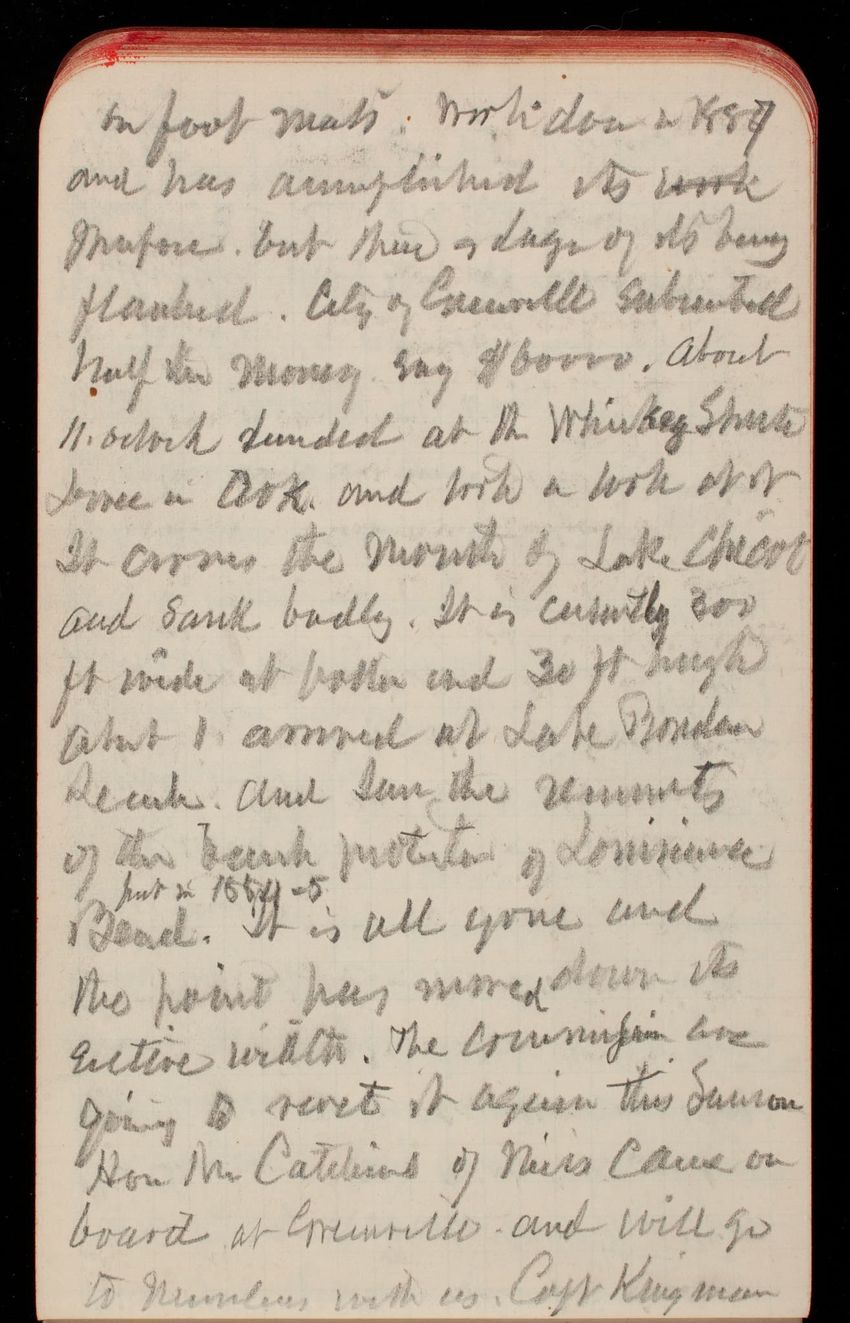 on foot mats. Work don in 1887
and has acomplished its work
Purpose. but there is dagr of its being
flanked. City of Greenville submitted
half the money say $60000. About
11. oclock landed at the Whiskey Shute
Levee in Ark. and took a look at it
It crosses the mouth of Lake Chicot
and sank badly. It is certly 300
ft wide at bottm and 30 ft high
abut 1 arrived at Lake
and saw the remnats
of the bank protectn of Louisiana
put in 1884-5
Bend. It is all gone and
the point has moved down its
entire width. The commission are
going to revet it again this Season
Hon Mr Catchins of Miss Came on
board at Greenville. and will go
to with us. Capt Kingman